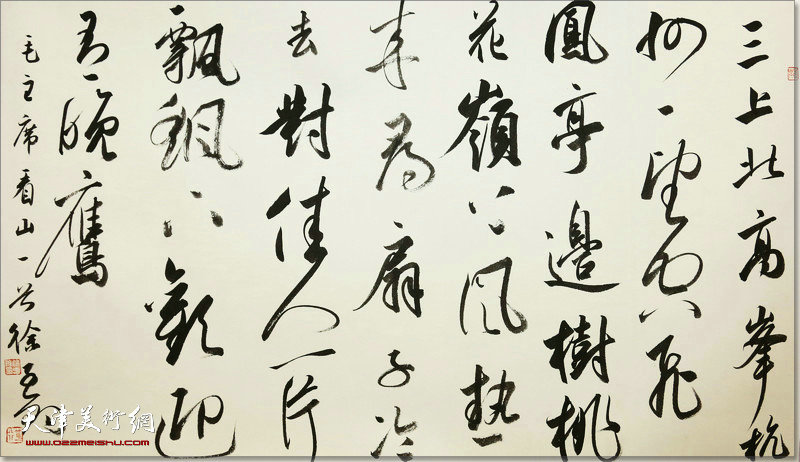 三上北高峯杭
州一望空飛
鳳亭邊樹桃
花嶺上風熱
来尋扇子冷
去對佳人一片
飄飄下歡迎
有晚鷹
毛主席看山一首徐
天津美術網
www.022meishu.com